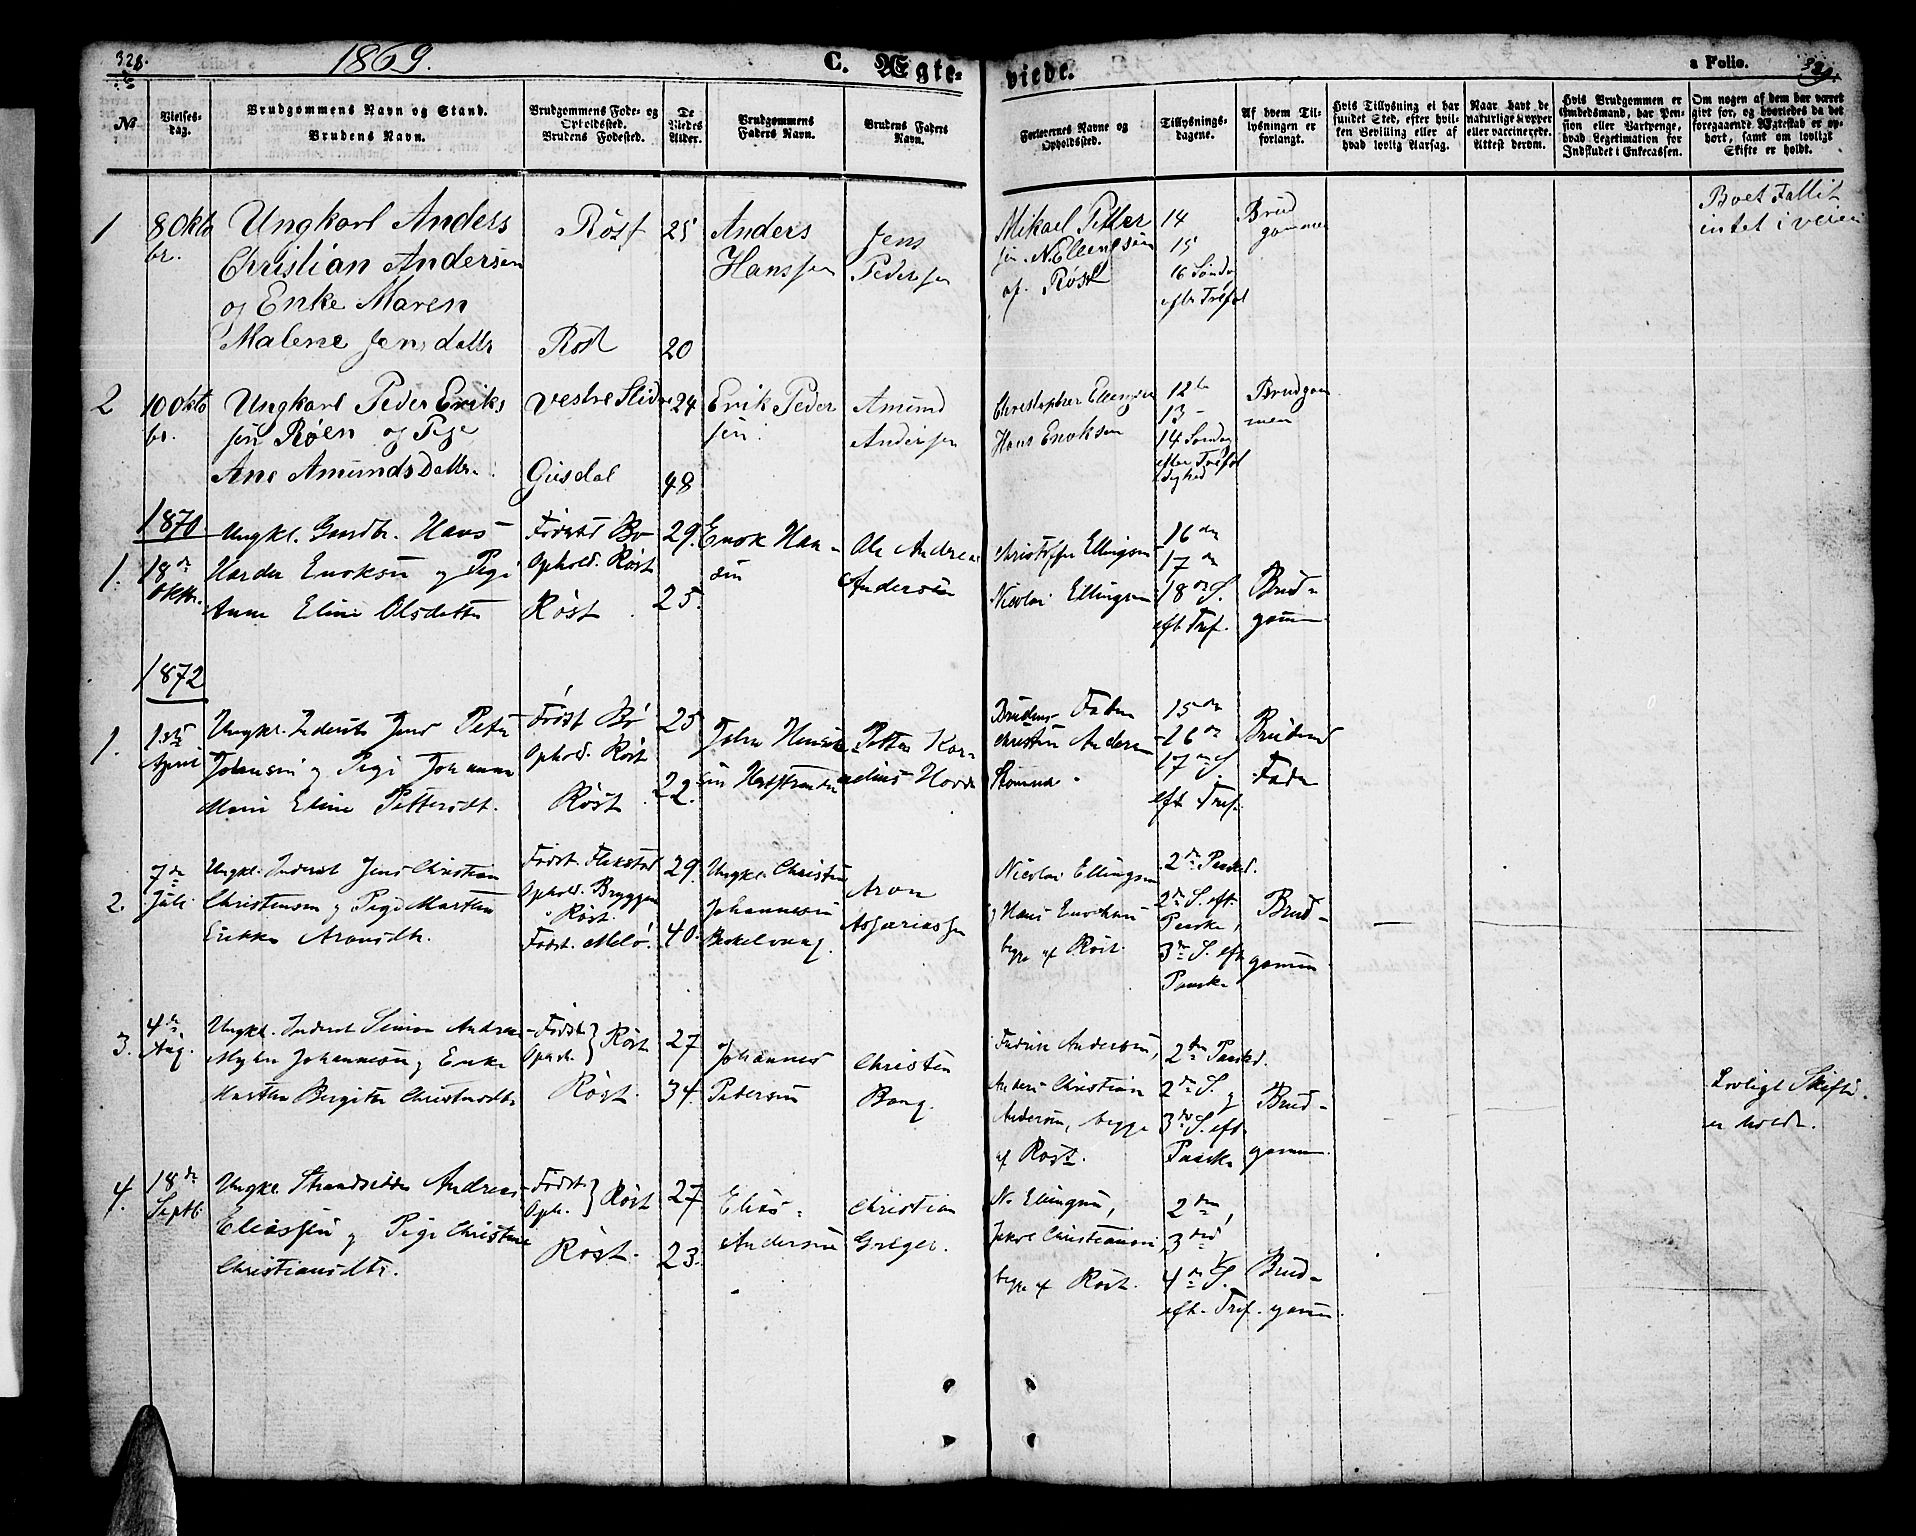 328.
1869.
C. Ægte-
viede.
a Folio.
329.
No
Vielses-
dag.
Brudgommens Navn og Stand.
Brudens Navn.
Brudgommens Føde- og
Opholdssted.
Brudens Fødested.
De
Viedes
Alder.
Brudgommens
Faders Navn.
Brudens Faders
Navn.
Forlovernes Navne og
Opholdssted.
Tillysnings-
dagene.
Af hvem Til-
lysningen er
forlangt.
Hvis Tillysning ei har
fundet Sted, efter hvil-
ken Bevilling eller af
hvad lovlig Aarsag.
Naar havt de
naturlige Kopper
eller vaccinerede.
Attest derom.
Hvis Brudgommen er
Embedsmand, har Pen-
sion eller Vartpenge,
hvad Legitimation for
Indskudet i Enkecassen.
Om nogen af dem har været
gift før, og hvorledes da det
foregaaende Ægteskab er op-
hørt, samt om lovligt
Skifte er holdt.
1
8 Okto
br.
Ungkarl Anders
Christian Andersen
og Enke Maren
Malene Jensdattr
Røst
Røst
25
20
Anders
Hanssen
Jens
Pedersen
Mikael Petter
sen. N. Ellingsen
af. Røst
14
15
16 Sønda
efter Trefol
Brud
gommen
Boet Fallit
intet i veien
2
10 Okto
br.
Ungkarl Peder Eriks
sen Røen og Pige
Ane Amunds Dattr.
Vestre Slidre
Gusdal
24
48
Erik Peder
sen.
Amund
Andersen
Christopher Ellingsen
Hans Enoksen
12te
13 -
14 Søndag
efter Trefol
dighed
Brudgom
men
1870.
1.
18de
Oktbr.
Ungkl. Gaardbr. Hans
Harder Enoksen og Pige
Anne Eline Olsdatter
Fødested Bø
Ophold. Røst
Røst
29.
25.
Enok Han-
sen
Ole Andreas
Andersen
Christoffer Ellingsen
Nicolai Ellingsen
16de
17de
18de S.
eft. Tref.
Brud-
gommen
1872
1.
1ste
April
Ungkl. Inderst Jens Peter
Johansen og Pige Johanna
Marie Eline Pettersdt.
Født Bø
Ophold. Røst
Røst
25
22.
Johan
Petter Kor-
nelius
Brudens Fader
Christen Andersen
15de
16de
17de S
eft. Tref.
Brudens
Fader
2.
7de
Juli
Ungkl. Inderst Jens Christian
Christensen og Pige Martha
Erikka Aronsdtr.
Født. Flakstad
Ophold. Bryggen
Røst.
Født. Melø.
29.
40.
Ungkl. Christen
Johannesen
Aron
Asgariassen
Nicolai Ellingsen
og Hans Enoksen
begge af Røst.
2den Paasked.
2den S. eft.
Paaske,
3die S. eft.
Paaske
Brud-
gommen
3.
4de
Aug.
Ungkl. Inderst Simon Andreas
Johannesen og Enke
Martha Birgitte Christensdtr.
Født } Røst
Oph.
Røst.
27
34.
Johannes
Petersen
Christen
Bang.
Fredrik Andersen,
Anders Christian
Andersen, begge
af Røst.
2den Paasked.
2den S. og
3die S. eft.
Paaske
Brud-
gommen.
Lovligt Skifte
er holdt.
4.
18de
Septb.
Ungkl. Strandsidder Andreas
Eliassen og Pige Christine
Christiansdtr.
Født } Røst
Oph.
Røst.
27.
23.
Elias
Andersen
Christian
Greger.
N. Ellingsen,
Jakob Christiansen,
begge af Røst.
2den,
3die
4de S.
eft. Tref.
Brud-
gommen.